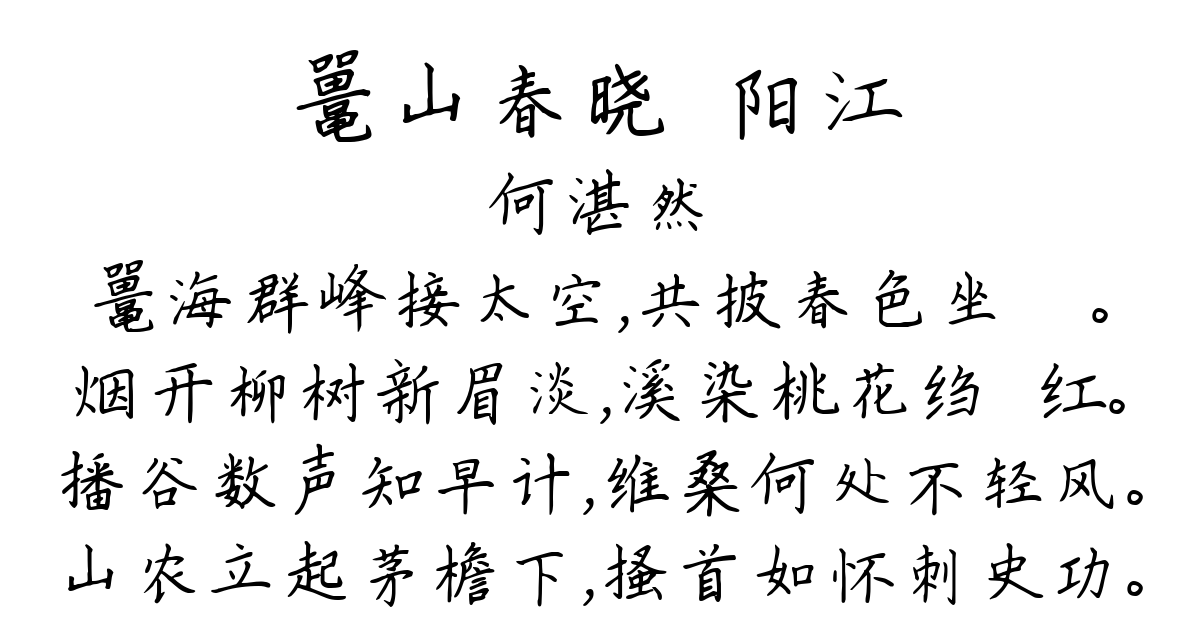 鼍山春晓 阳江
何湛然
鼍海群峰接太空,共披春色坐 。
烟开柳树新眉淡,溪染桃花绉 红。
播谷数声知早计,维桑何处不轻风。
山农立起茅檐下,搔首如怀刺史功。